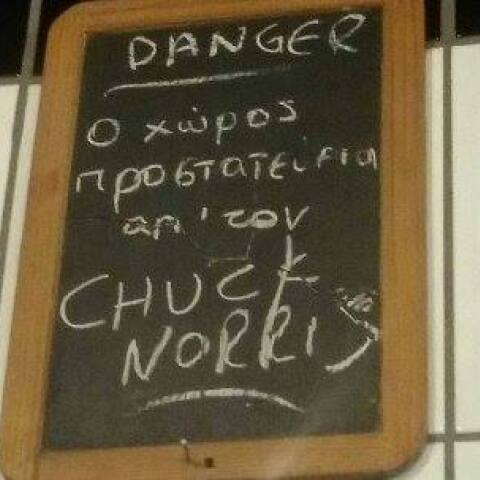 DANGER
Ο χώρος
προστατεύεται
απ' τον
CHUCK
NORRIS